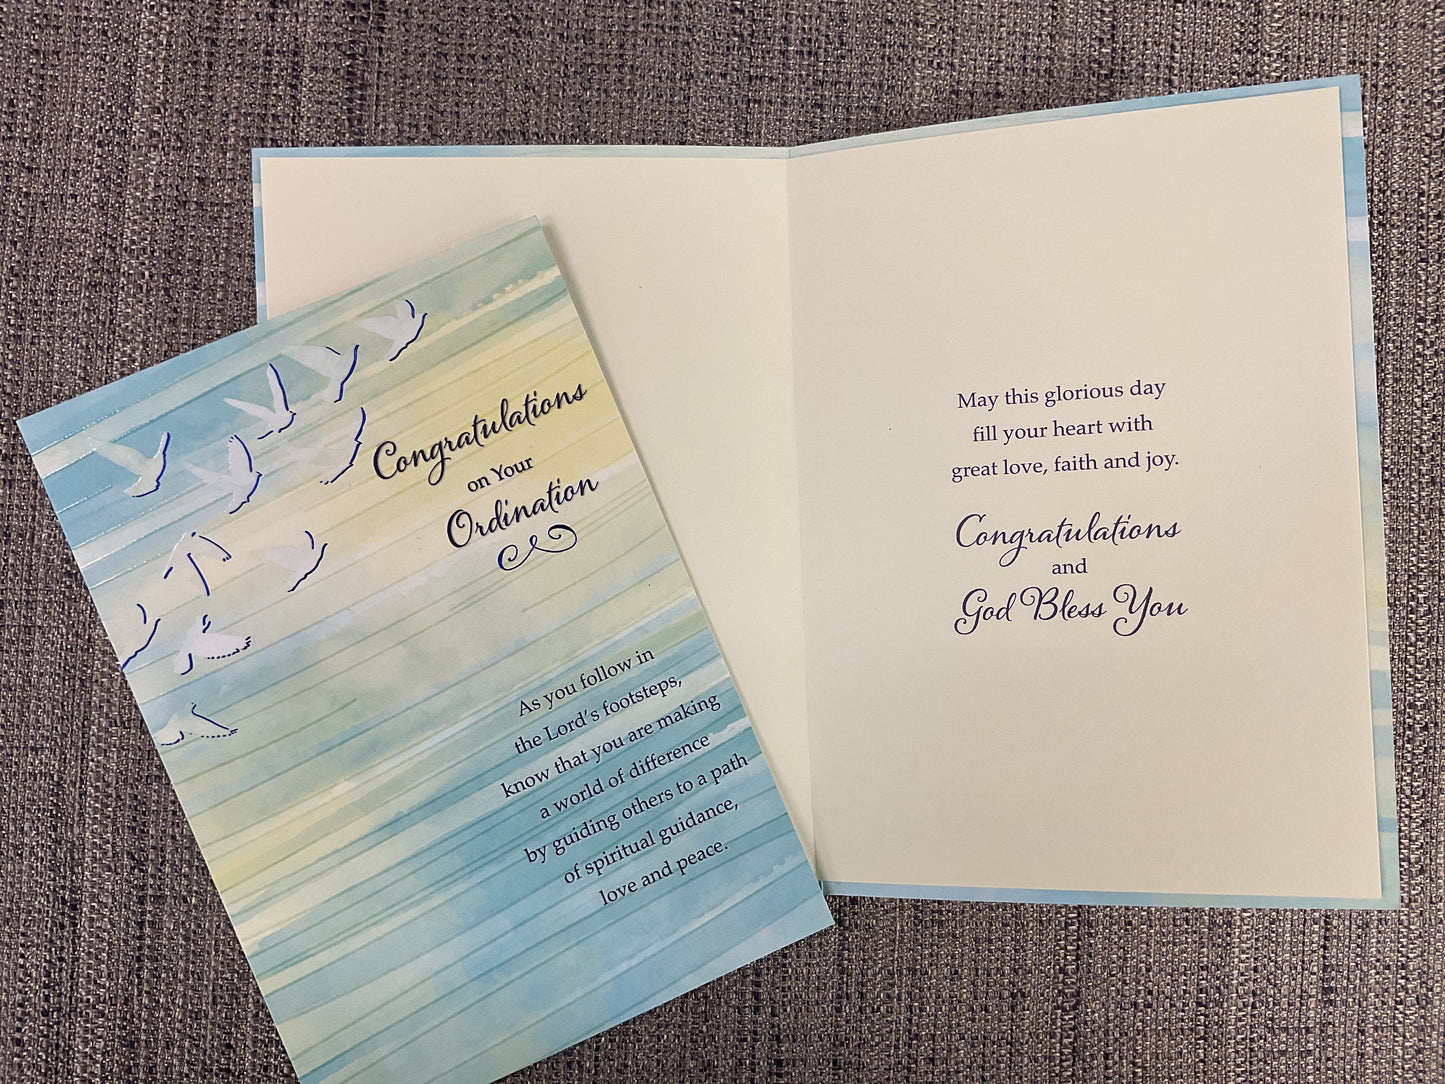 Congratulations
on Your
Ordination
As you follow in
the Lord's footsteps,
know that you are making
a world of difference
by guiding others to a path
of spiritual guidance,
love and peace.
May this glorious day
fill your heart with
great love, faith and joy.
Congratulations
and
God Bless You